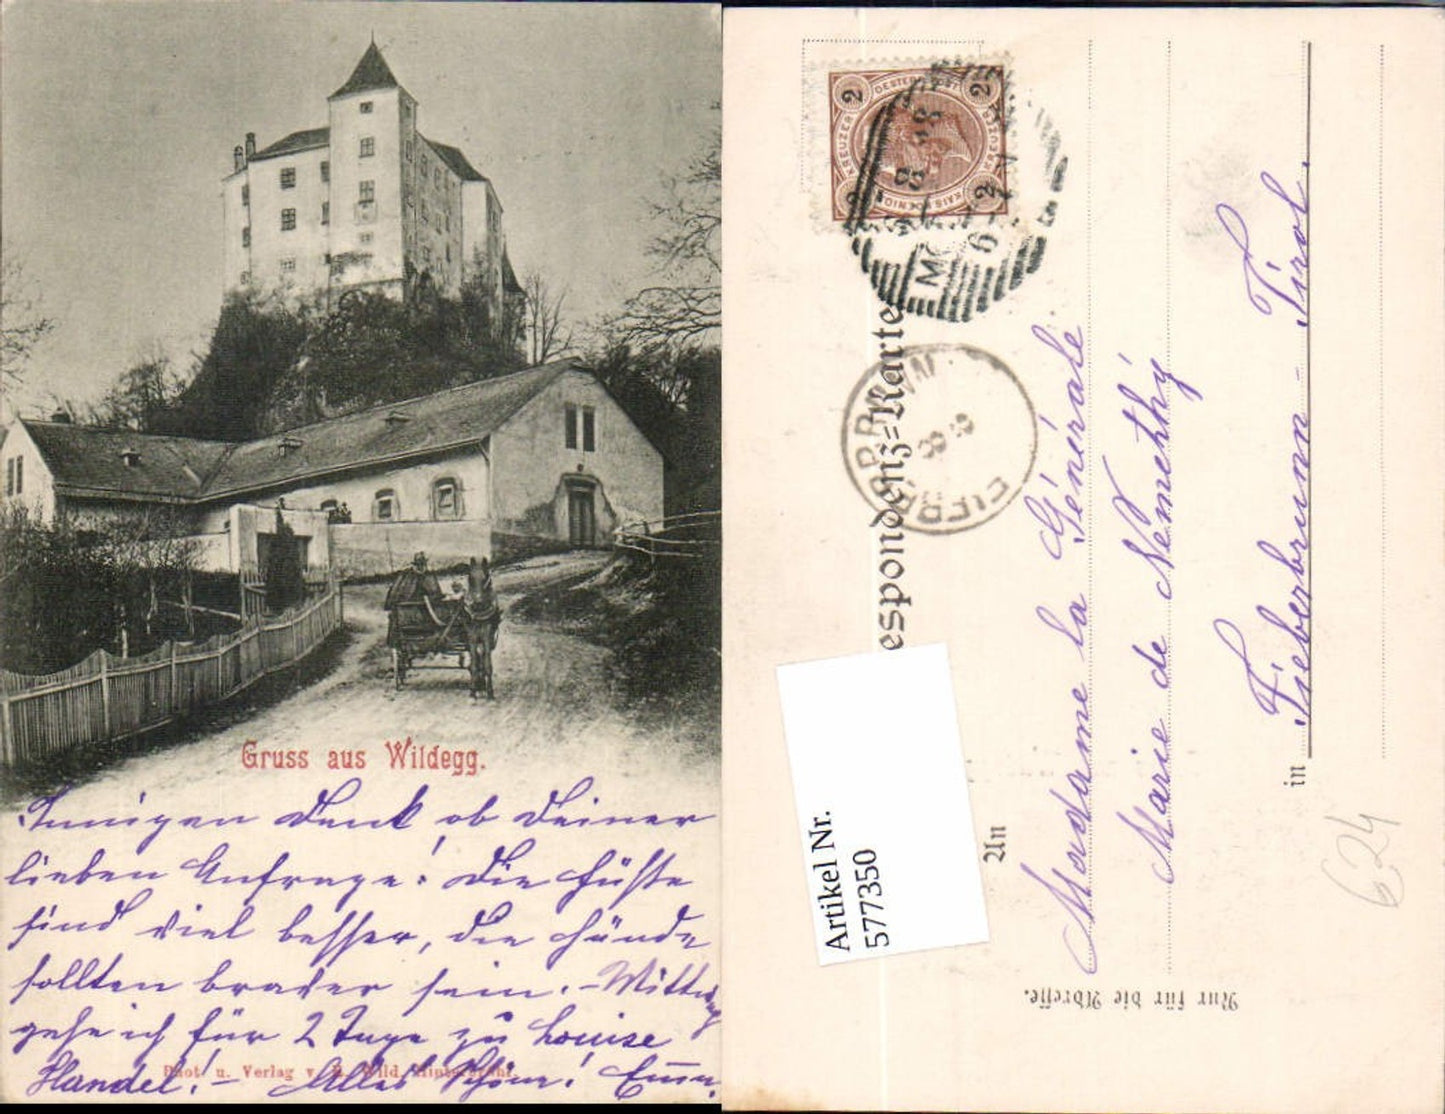 Gruss aus Wildegg.
Innigen Dank ob Deiner
lieben Anfrage! Die Füße
sind viel besser, die Hände
sollten braver sein. – Mittwoch
gehe ich für 2 Tage zu Louise
Handel! – Alles Schöne! Emm.
Phot. u. Verlag v. Wild,
2 2
OESTERR. POST
KREUZER KREUZER
KAIS. KÖNIGL.
2 2
FIEBERBRUNN
Correspondenz-Karte
An
Madame la Générale
Marie de Némethý
Fieberbrunn – Tirol.
in
Nur für die Adresse.
Artikel Nr.
577350
624